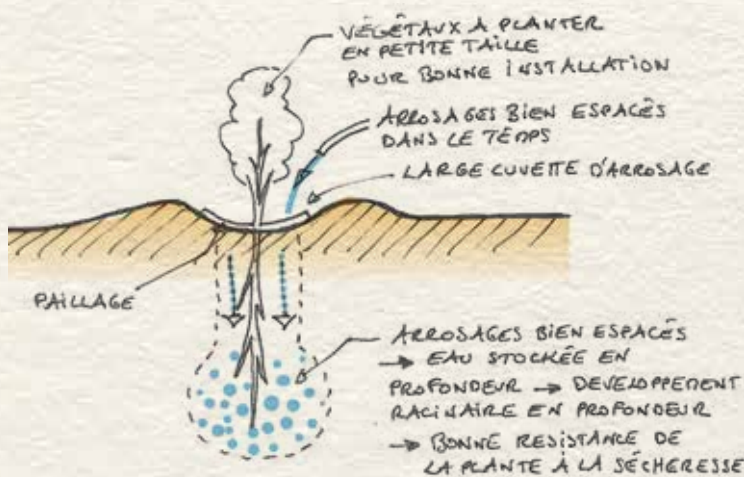 VÉGÉTAUX A PLANTER
EN PETITE TAILLE
POUR BONNE INSTALLATION
ARROSAGES BIEN ESPACÉS
DANS LE TEMPS
LARGE CUVETTE D'ARROSAGE
PAILLAGE
ARROSAGES BIEN ESPACÉS
→ EAU STOCKÉE EN
PROFONDEUR → DEVELOPPEMENT
RACINAIRE EN PROFONDEUR
→ BONNE RESISTANCE DE
LA PLANTE À LA SÉCHERESSE